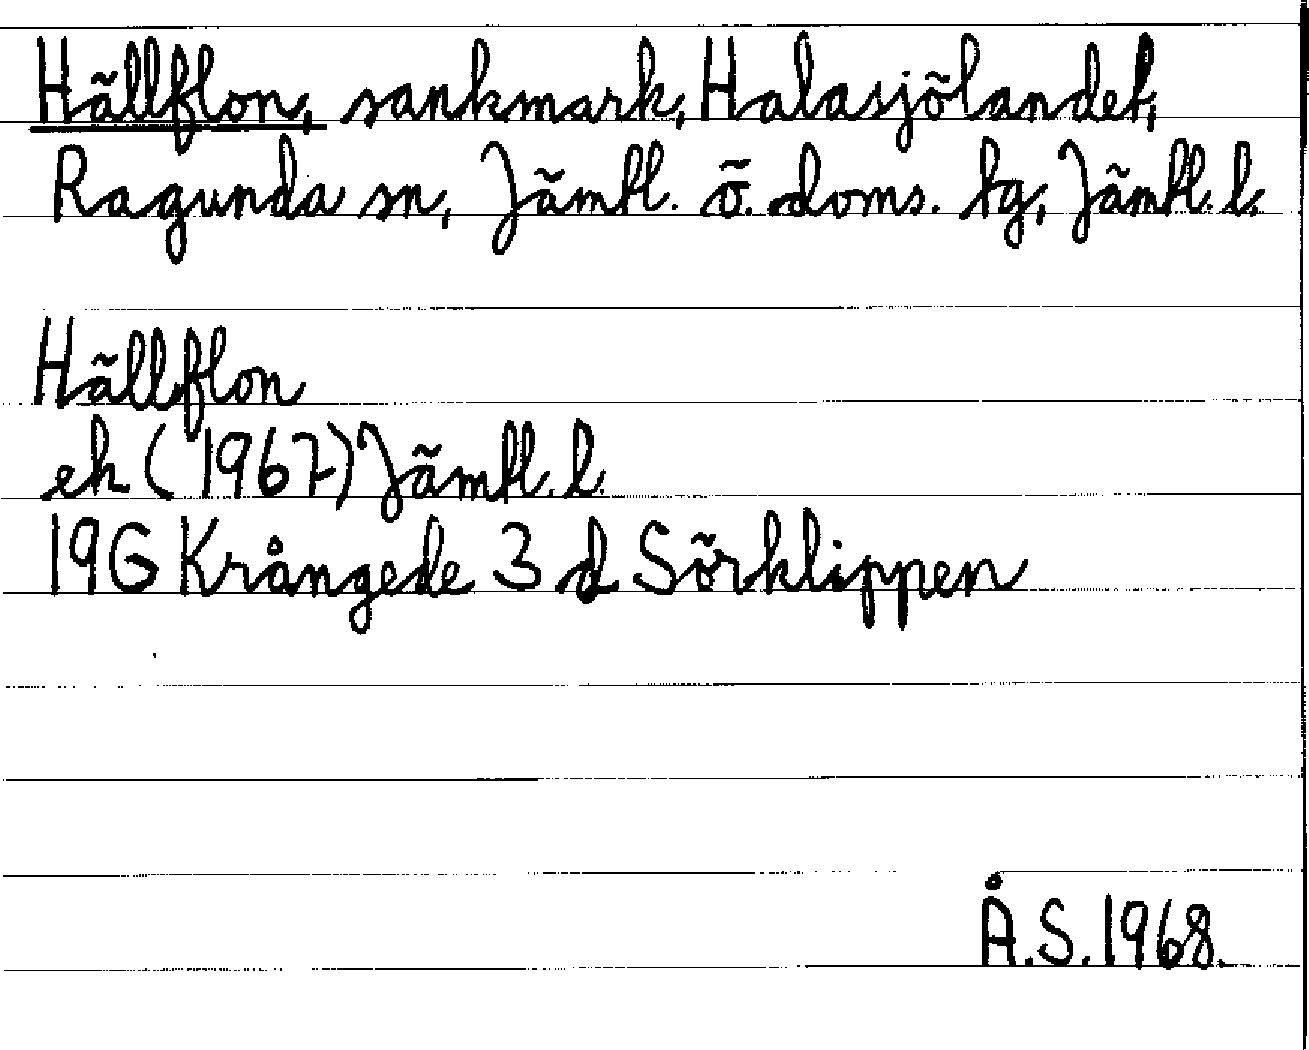 Hällflon, sankmark, Halasjölandet,
Ragunda sn, Jämtl. ö. doms. tg, Jämtl. l.
Hällflon
ek (1967) Jämtl. l.
19G Krångede 3 d Sörklippen
Å.S. 1968.